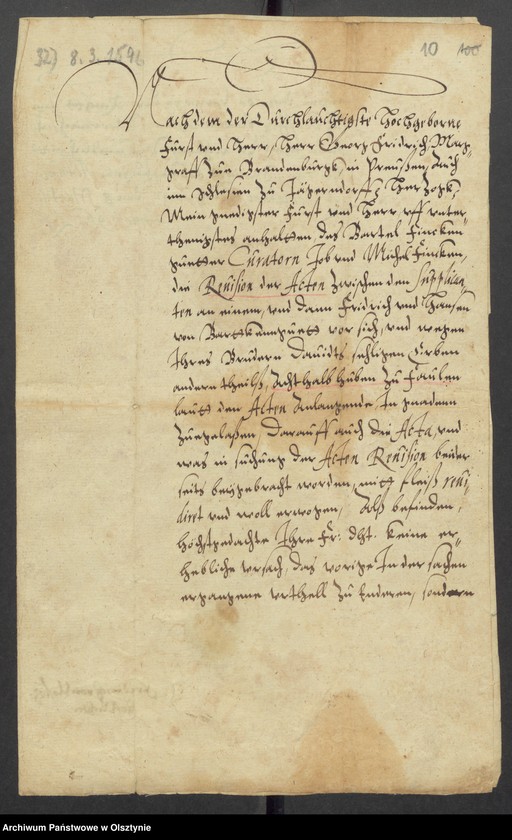 32) 8.3.1591
10 100
Nachdem der Durchlauchtigste Hochgeborne
Fürst vnd Herr, Herr Georg Fridrich Marg-
graff Zue Brandenburgk, in Preußen, Auch
inn Schlesien Zu Jägerndorff Hertzogk,
Mein gnedigster Fürst vnd Herr, vff vnter-
thenigstes anhaltten des Bartel Fincken
Curatorn Job vnd Michel Fincken,
die Reuision der Acten zwischen den Supplican-
ten an einem, vnd dann Fridrich vnd Hansen
von vor sich, vnd wegen
Ihres Brudern Dauidts sehligen Erben
andern theilß, Achthalb huben Zu Faulen
lautt den Acten Anlangende, In gnaden
Zuegelaßen, Darauff auch die Acta, vnd
was in suchung der Acten Reuision beider
seits beygebracht worden, mitt fleiß reui-
diret vnd woll erwogen, Alß befinden
höchstgedachte Ihre Fr: Dht: keine er-
hebliche vrsach, das vorige In der sachen
ergangene vrthell Zu Enderen, sondern
Archiwum Państwowe w Olsztynie